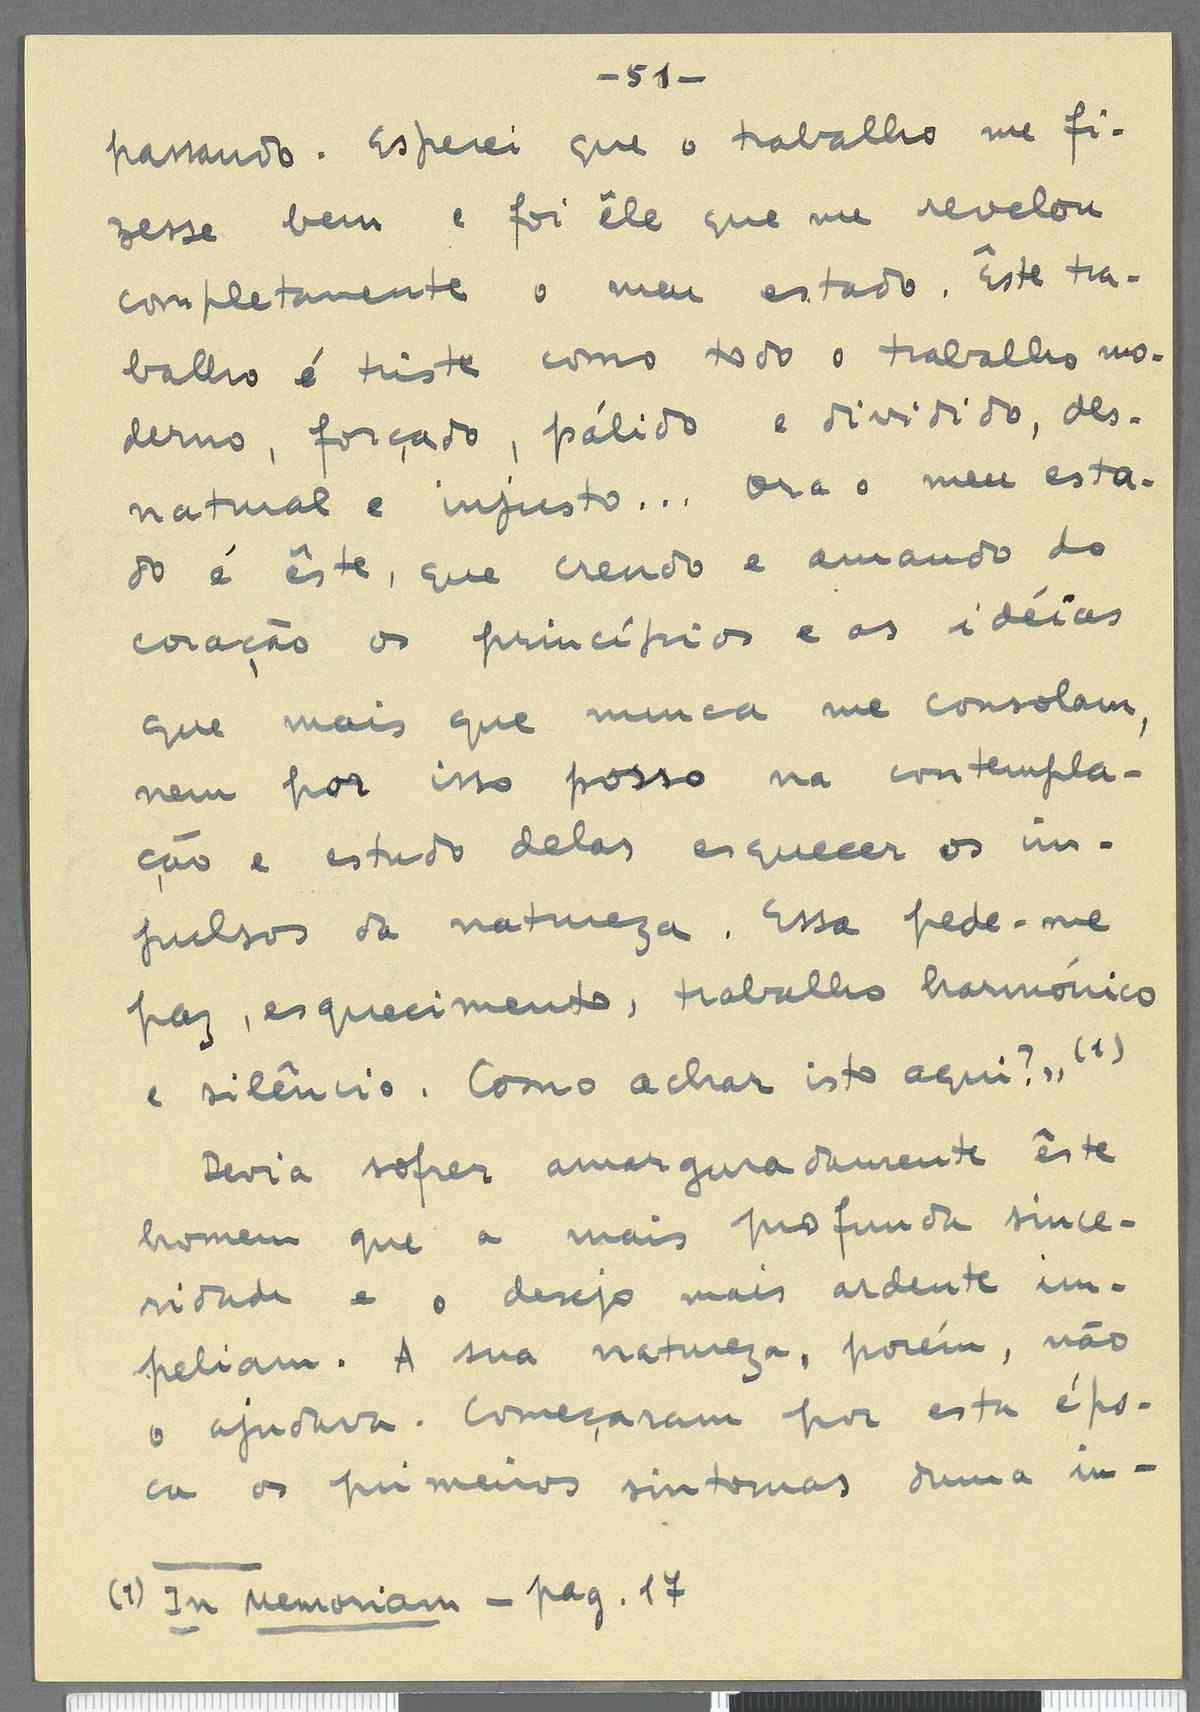 -51-
passando. Esperei que o trabalho me fi-
zesse bem e foi êle que me revelou
completamente o meu estado. Êste tra-
balho é triste como todo o trabalho mo-
derno, forçado, pálido e dividido, des-
natural e injusto... ora o meu esta-
do é êste, que crendo e amando do
coração os princípios e as idéias
que mais que nunca me consolam,
nem por isso posso na contempla-
ção e estudo delas esquecer os im-
pulsos da natureza. Essa pede-me
paz, esquecimento, trabalho harmónico
e silêncio. Como achar isto aqui?,, (1)
Devia sofrer amarguradamente êste
homem que a mais profunda since-
ridade e o desejo mais ardente im-
peliam. A sua natureza, porém, não
o ajudava. Começaram por esta épo-
ca os primeiros sintomas duma in-
(1) In Memoriam - pag. 17